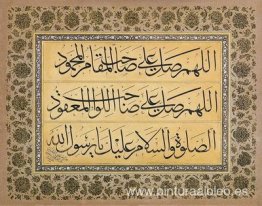 اللهم صل على صاحب المقام المحمود
اللهم صل على صاحب اللواء المعقود
الصلاة والسلام عليك يا رسول الله
www.pinturaaloleo.es